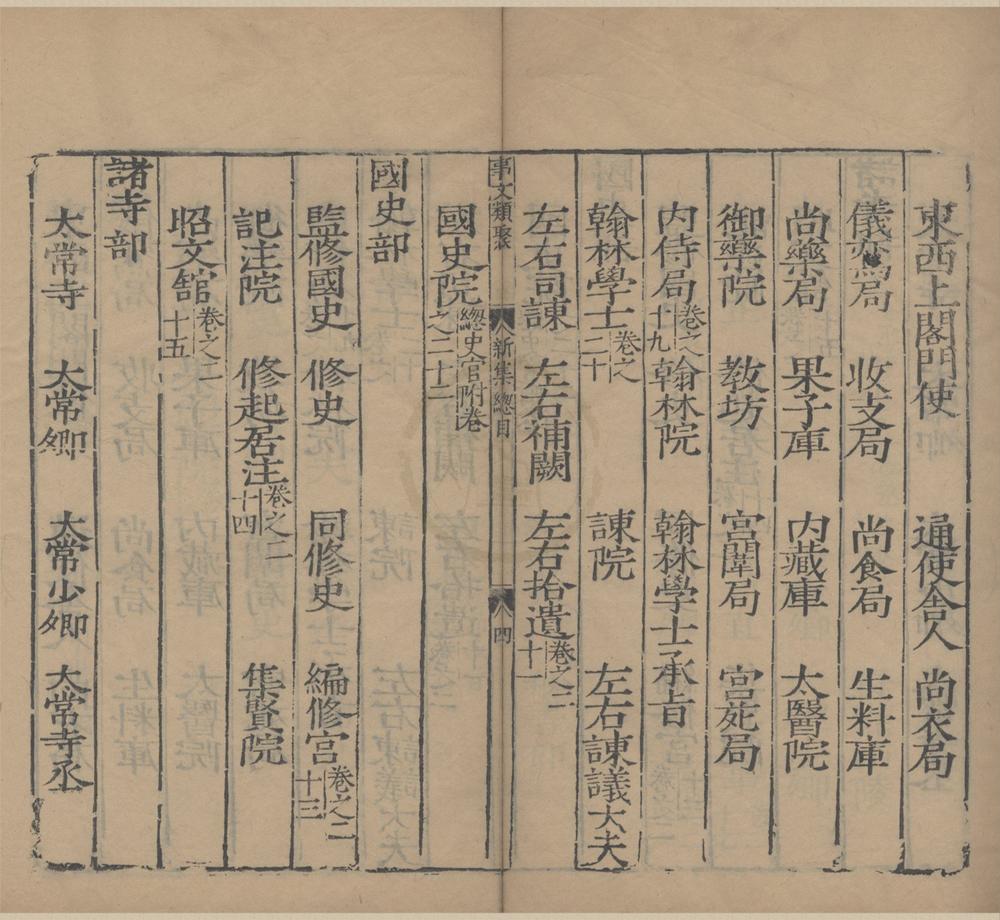 東西上閤門使 通使舍人 尚衣局
儀鸞局 收支局 尚食局 生料庫
尚藥局 果子庫 内藏庫 太醫院
御藥院 敎坊 宮闈局 宮苑局
内侍局卷之十九 翰林院 翰林學士承旨
翰林學士卷之二十 諫院 左右諫議大夫
左右司諫 左右補闕 左右拾遺卷之二十一
事文類聚 新集總目 四
國史院總史官附卷之二十二
國史部
監修國史 修史 同修史 編修官卷之二十三
記注院 修起居注卷之二十四 集賢院
昭文舘卷之二十五
諸寺部
太常寺 太常卿 太常少卿 太常寺丞